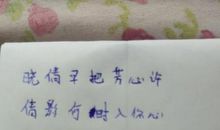 晓倩早把芳心许
倩影何时入你心